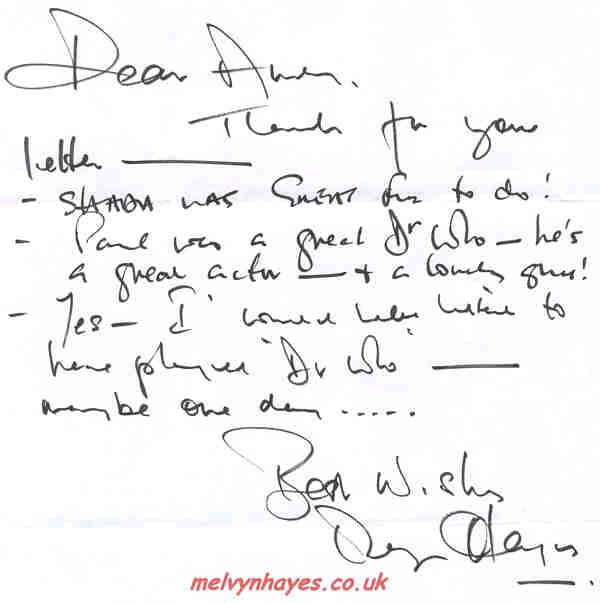 Dear
Thanks for your
letter ———
- SHADA was GREAT fun to do!
- Paul was a great Dr Who — he's
a great actor — + a lovely guy!
- Yes — I would have liked to
have played 'Dr Who' ———
maybe one day .....
Best Wishes
Hayes
melvynhayes.co.uk